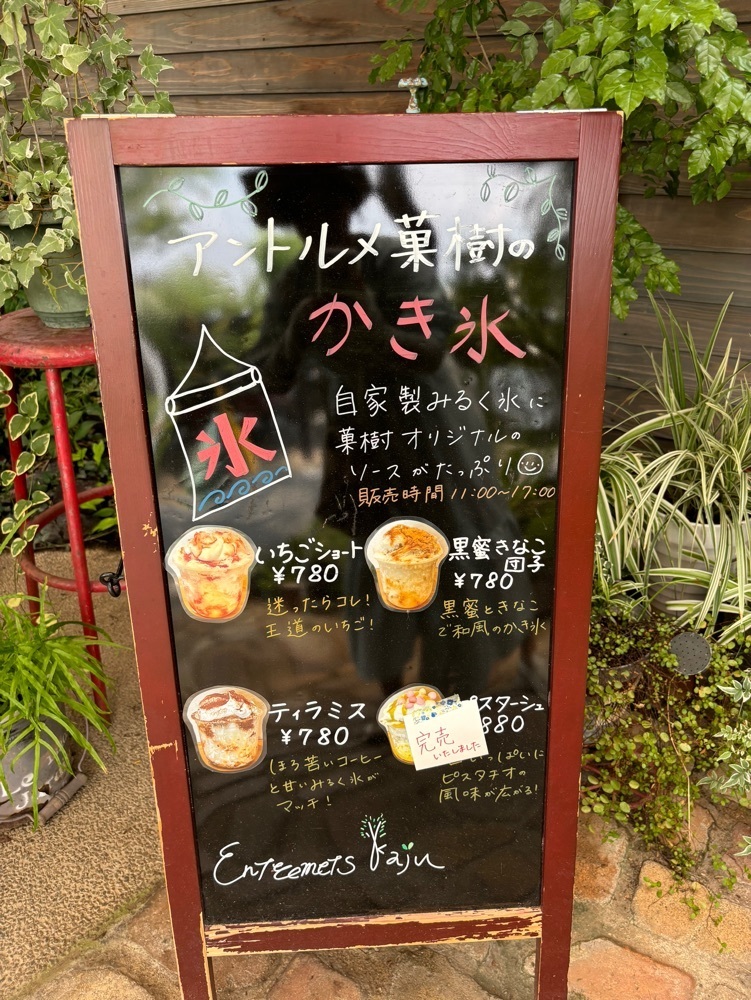 アントルメ菓樹の
かき氷
氷
自家製みるく氷に
菓樹オリジナルの
ソースがたっぷり
販売時間 11:00~17:00
いちごショート
¥780
迷ったらコレ!
王道のいちご!
黒蜜きなこ
団子
¥780
黒蜜ときなこ
で和風のかき氷
ティラミス
¥780
ほろ苦いコーヒー
と甘いみるく氷が
マッチ!
スターシュ
880
完売
いたしました
っぱいに
ピスタチオの
風味が広がる!
Entremets Kaju